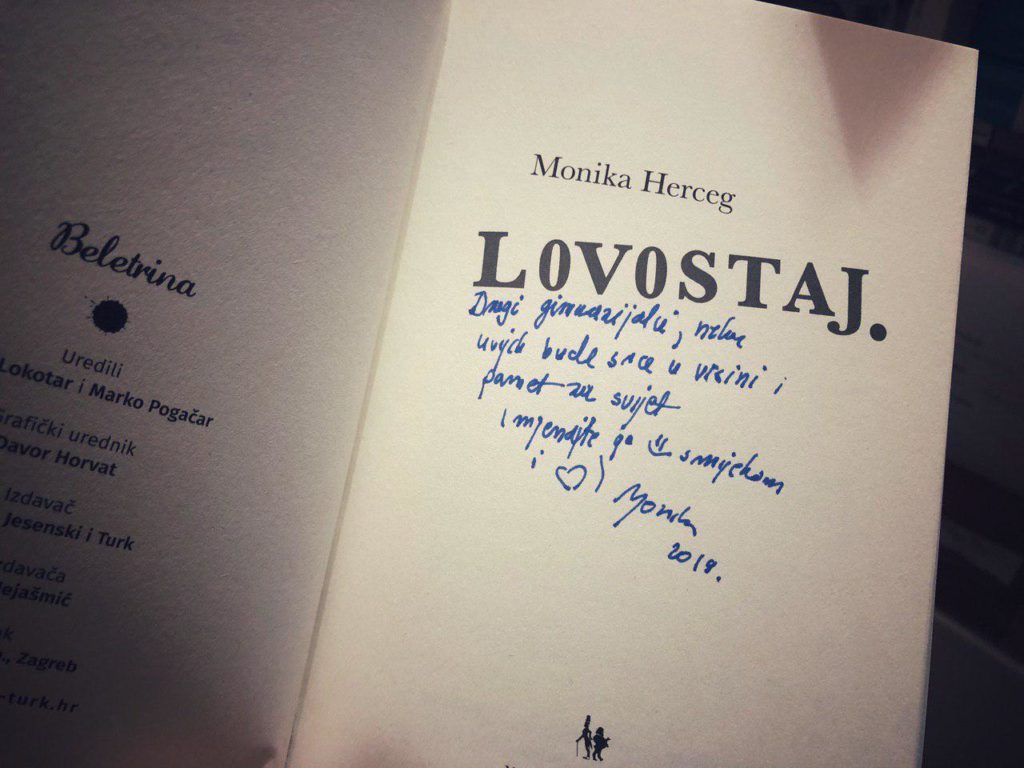 Beletrina
Uredili
Lokotar i Marko Pogačar
Grafički urednik
Davor Horvat
Izdavač
Jesenski i Turk
, Zagreb
-turk.hr
Monika Herceg
LOVOSTAJ.
Dragi gimnazijalci, neka
uvijek bude srce u visini i
pamet za svijet
i mjenjajte ga smijehom
i
Monika
2019.